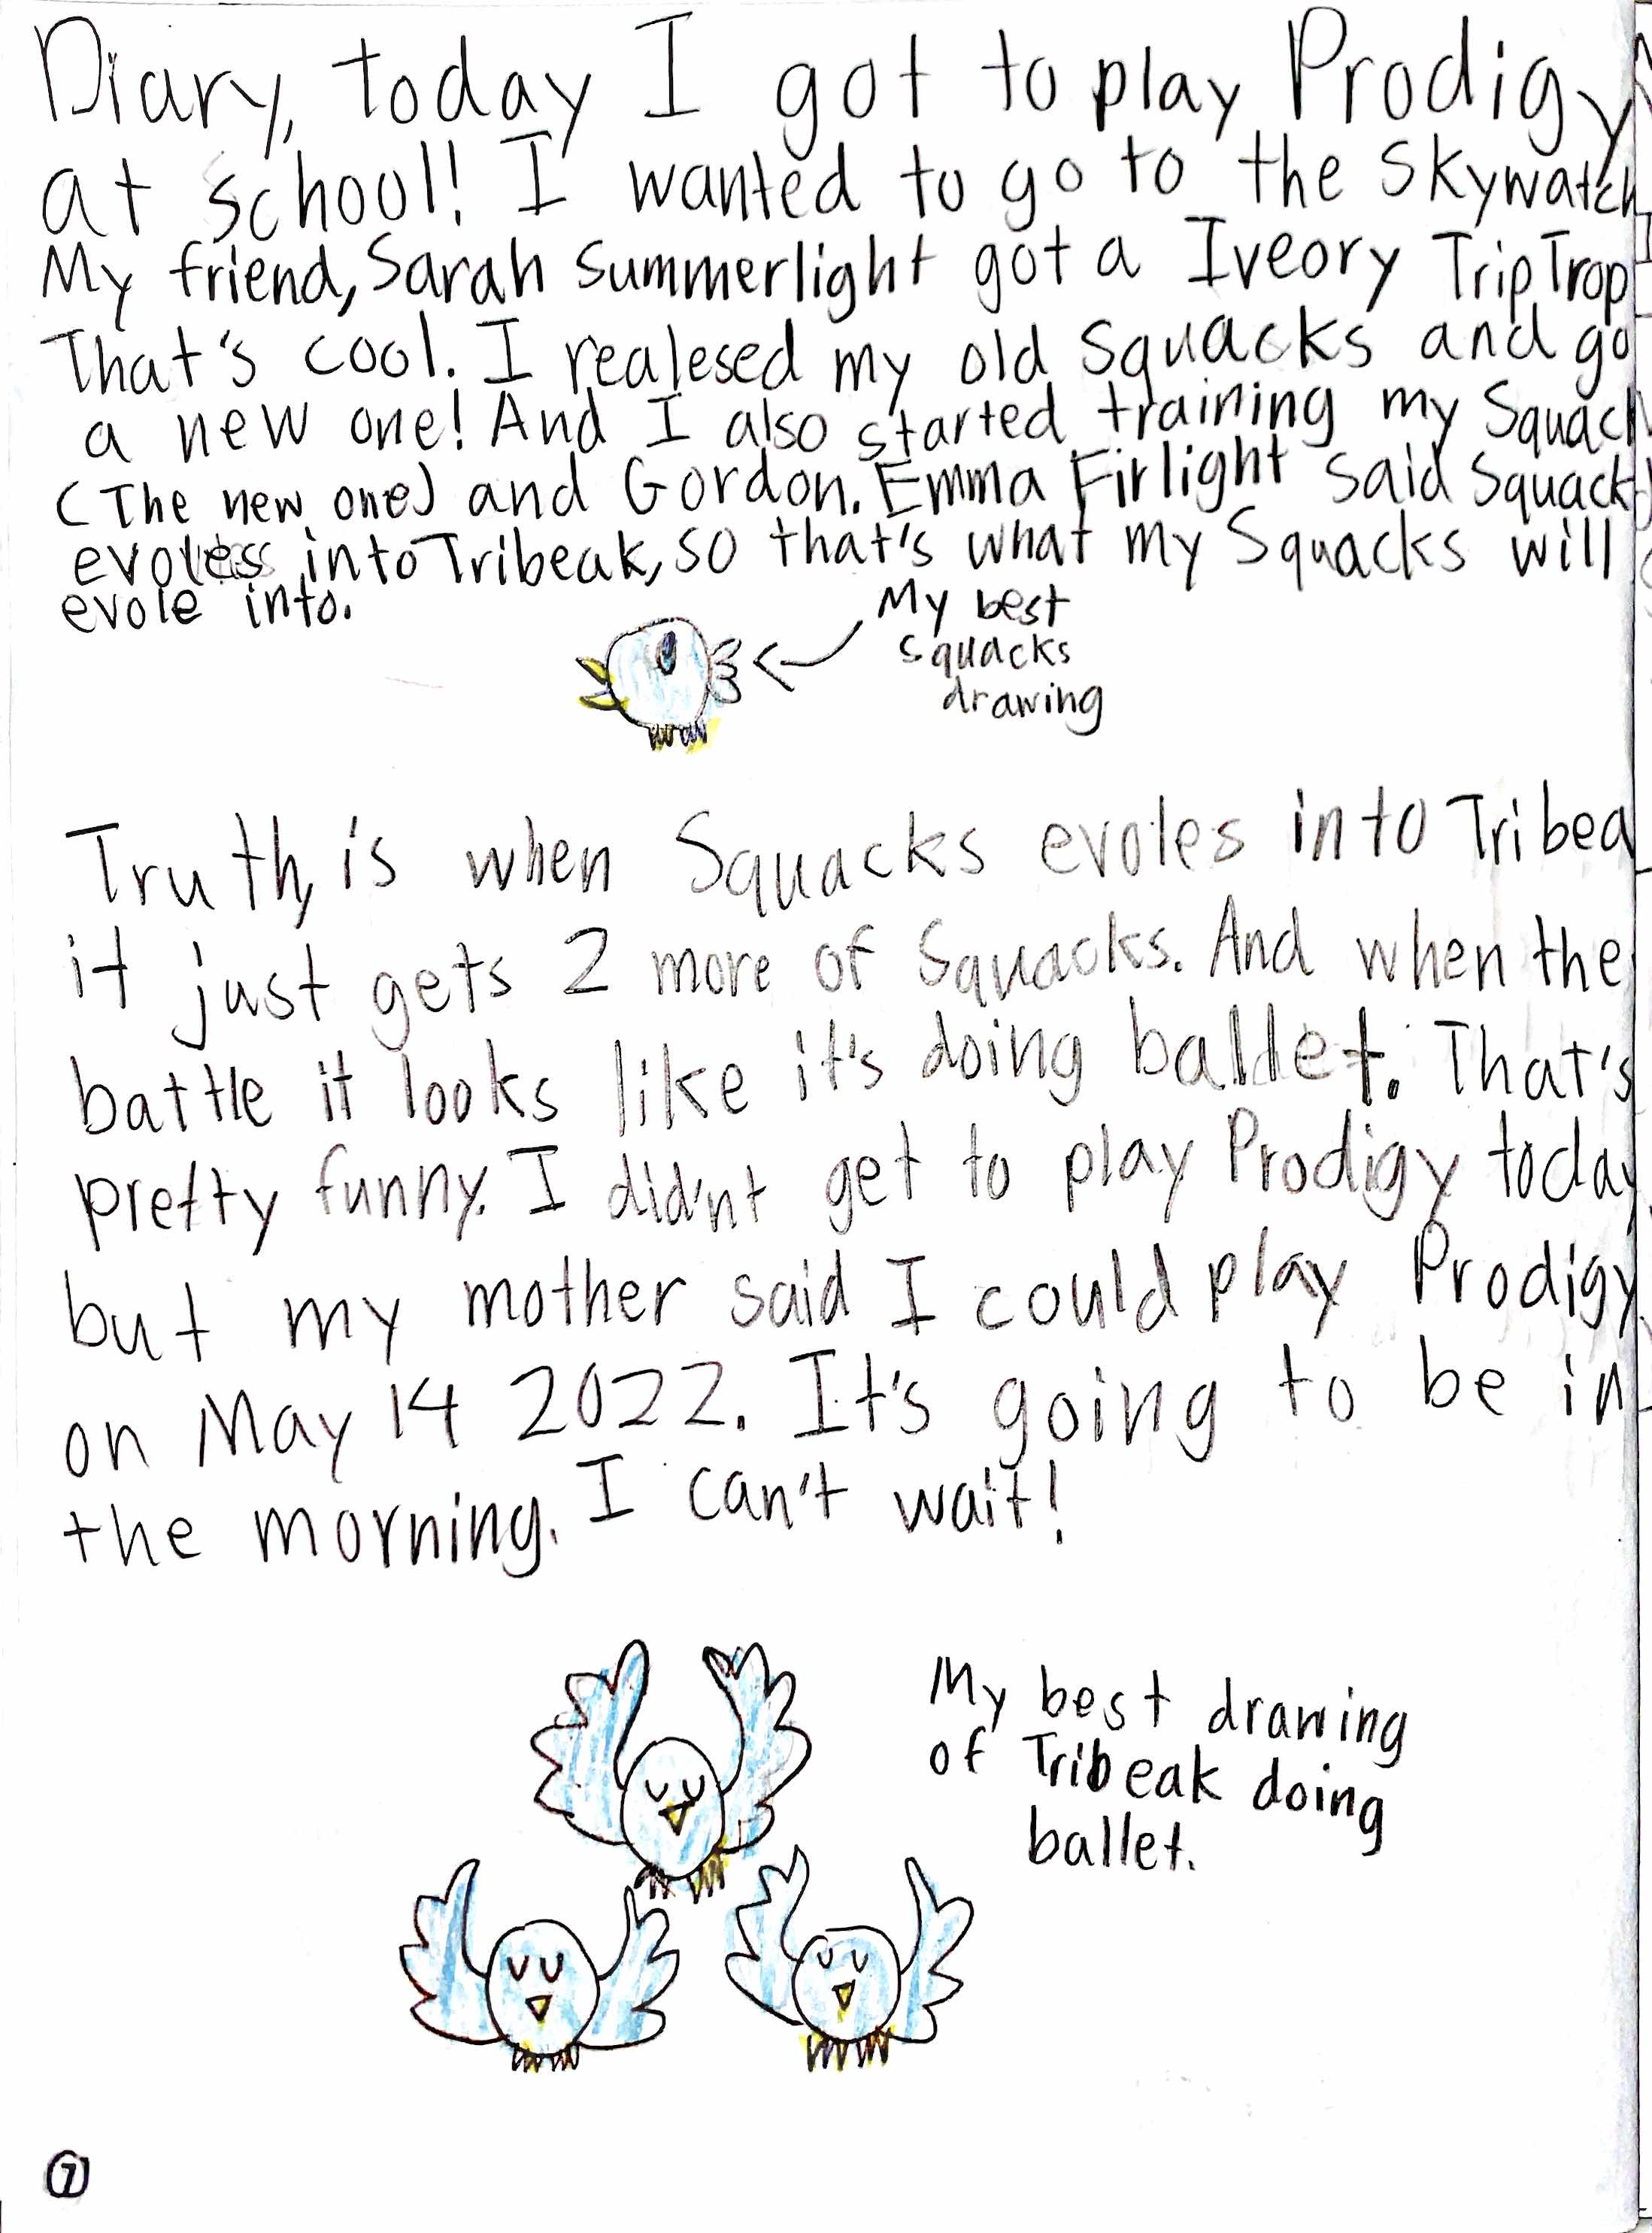 Diary, today I got to play Prodigy
at school! I wanted to go to the Skywatch
My friend, Sarah Summerlight got a Iveory Trip Trop
That's cool. I realesed my old Squacks and go
a new one! And I also started training my Squack
(The new one) and Gordon. Emma Firlight said Squack
evoles into Tribeak, so that's what my Squacks will
evole into.
My best
squacks
drawing
Truth, is when Squacks evoles into Tribea
it just gets 2 more of Squacks. And when the
battle it looks like it's doing ballet. That's
pretty funny. I did'nt get to play Prodigy today
but my mother said I could play Prodigy
on May 14 2022. It's going to be in
the morning. I can't wait!
My best drawing
of Tribeak doing
ballet.
7